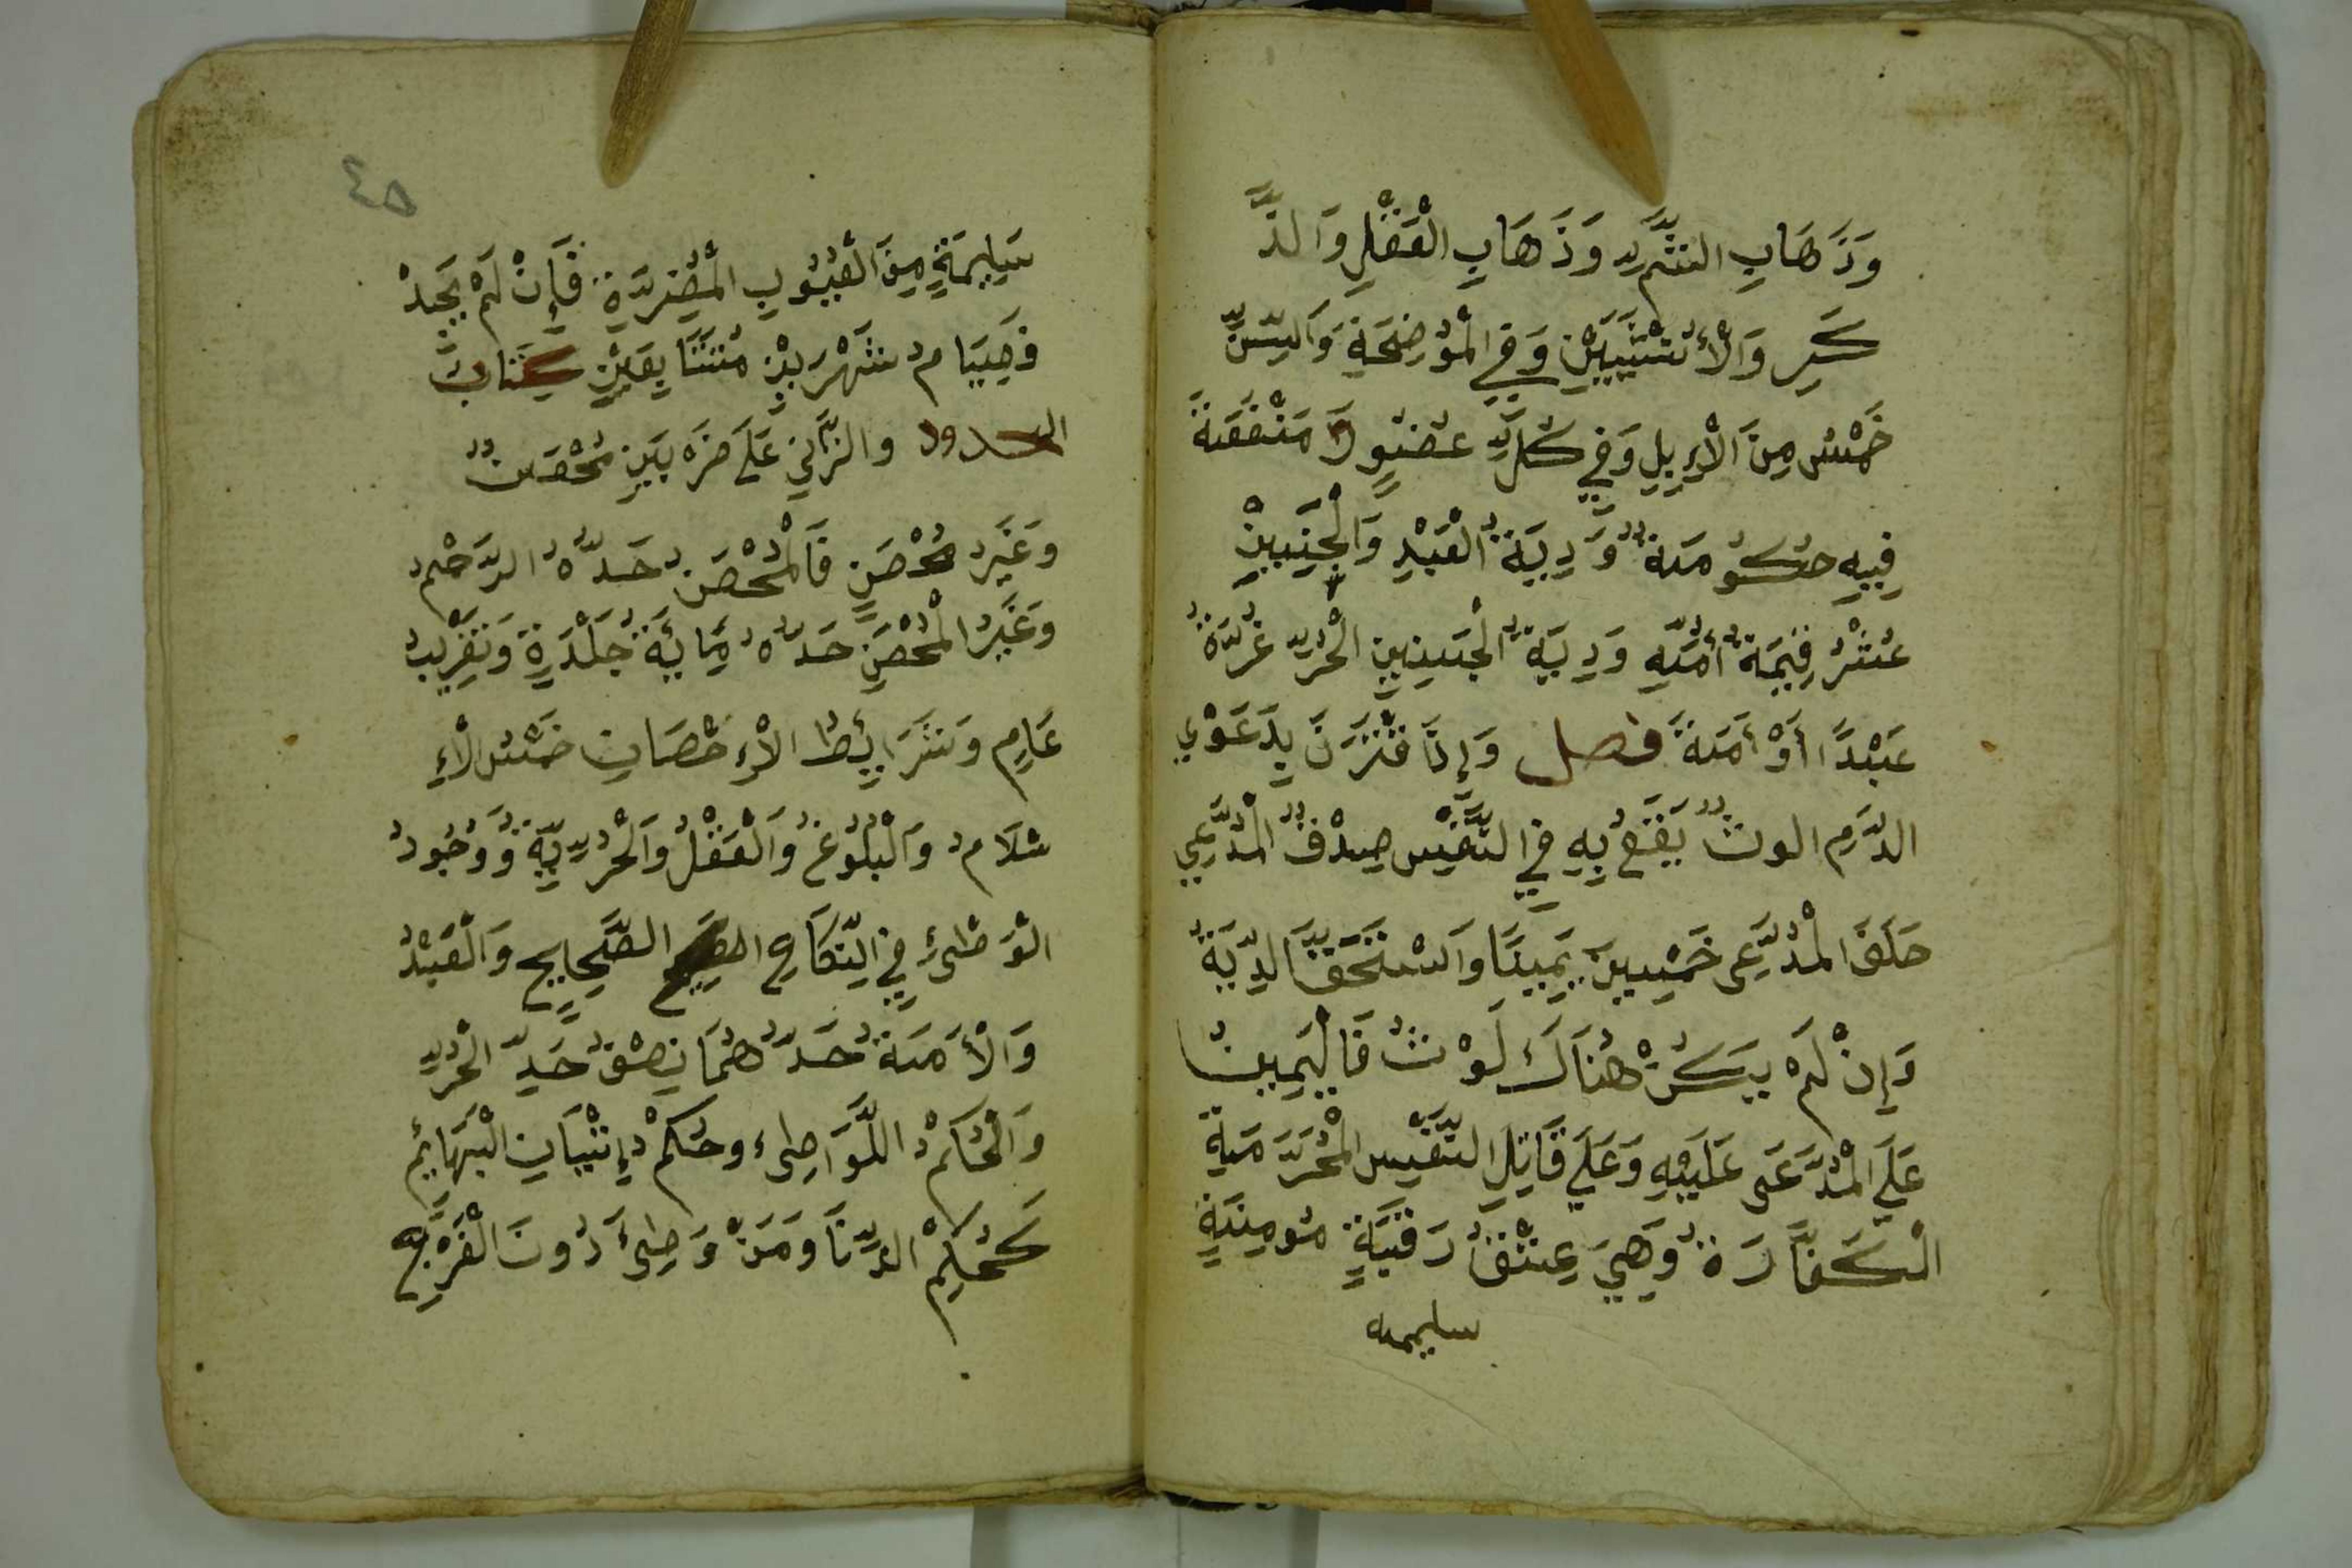 وَذَهَابِ الشَّمِّ وَذَهَابِ الْعَقْلِ وَالذَّ
كَرِ وَالْأُنْثَيَيْنِ وَفِي الْمُوْضِحَةِ وَالسِّنِّ
خَمْسٌ مِنَ الْإِبِلِ وَفِي كُلِّ عُضْوٍ لَا مَنْفَعَةَ
فِيهِ حُكُومَةٌ وَدِيَةُ الْعَبْدِ وَالْجَنِينِ
عُشْرُ قِيمَةُ أُمِّهِ وَدِيَةُ الْجَنِينِ الْحُرِّ غُرَّةُ
عَبْدًا أَوْ أَمَةً فصل وَإِذَا قْتَرَنَ بِدَعْوَي
الدَّمِ الوثٌ يَقَعُ بِهِ فِي النَّفْسِ صِدْقُ الْمُدَّعِي
حَلَفَ الْمُدَّعِى خَمْسِينَ يَمِينًا وَاسْتَحَقَّ الدِّيَةُ
وَإِنْ لَمْ يَكُنْ هُنَاكَ لَوْثٌ فَالْيَمِينُ
عَلَي الْمُدَّعَى عَلَيْهِ وَعَلَي قَاتِلِ النَّفْسِ الْمُحَرَّمَةِ
الْكَفَّارَةُ وَهِيَ عِتْقُ رَقَبَةٍ مُومِنَةٍ
سليمه
٤٥
سَلِيمَةٍ مِنَ الْعُيُوبِ الْمُضِرَّةِ فَإِنْ لَمْ يَجِدْ
فَصِيَامُ شَهْرَيْنِ مُتَتَابِعَيْنِ كِتَابُ
الحدود والزَّانِي عَلَي ضَرْبَيْنِ مُحْصَنٌ
وَغَيْرُ مُحْصَنٍ فَالْمُحْصَنُ حَدُّهُ الرَّجْمُ
وَغَيْرُ الْمُحْصَنِ حَدُّهُ مِائَةُ جَلْدَةٍ وَتَغْرِيبُ
عَامٍ وَشَرَايِطُ الْإِحْصَانِ خَمْسٌ الْإِ
سْلَامُ وَالْبُلُوغُ وَالْعَقْلُ وَالْحُرِّيَّةُ وَوُجُودُ
الْوَطْىءِ فِي النِّكَاحِ الصَّحِيحِ وَالْعَبْدُ
وَالْأَمَةُ حَدُّهُمَا نِصْفُ حَدِّ الْحُرِّ
وَالْحُكْمُ اللَّوَاطِىء وحُكْمُ إِتْيَانِ الْبَهَائِمِ
كَحُكْمِ الزِّنَا وَمَنْ وَطِىءَ دُونَ الْفَرْجِ